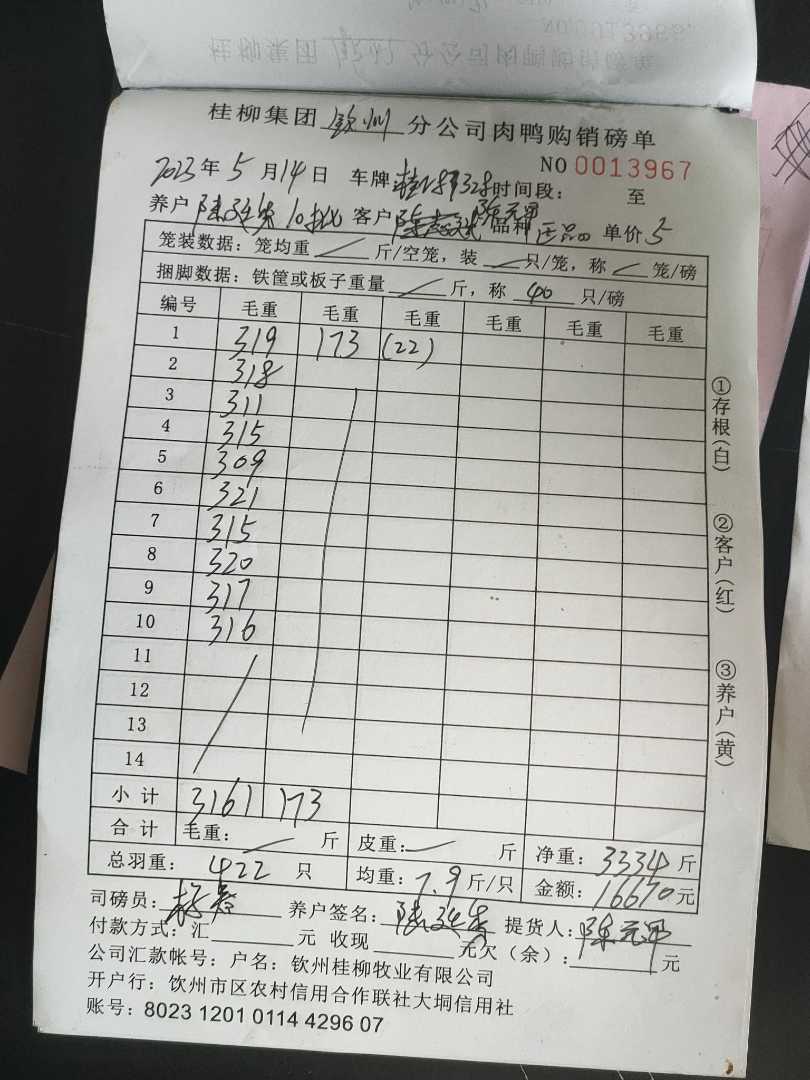 桂柳集团 钦州 分公司肉鸭购销磅单
NO 0013967
2023年5月14日 车牌 时间段： 至
养户 10批 客户 陈元甲 品种 正品 单价 5
笼装数据：笼均重 斤/空笼，装 只/笼，称 笼/磅
捆脚数据：铁筐或板子重量 斤，称 40 只/磅
编号 毛重 毛重 毛重 毛重 毛重 毛重
1 319 173 (22)
2 318
3 311
4 315
5 309
6 321
7 315
8 320
9 317
10 316
11
12
13
14
小计 3161 173
合计 毛重： 斤 皮重： 斤 净重：3334斤
总羽重： 422 只 均重：7.9斤/只 金额：16670元
司磅员： 养户签名： 提货人：陈元甲
付款方式：汇 元 收现 元欠（余）： 元
公司汇款帐号：户名：钦州桂柳牧业有限公司
开户行：钦州市区农村信用合作联社大垌信用社
账号：8023 1201 0114 4296 07
①存根（白）
②客户（红）
③养户（黄）